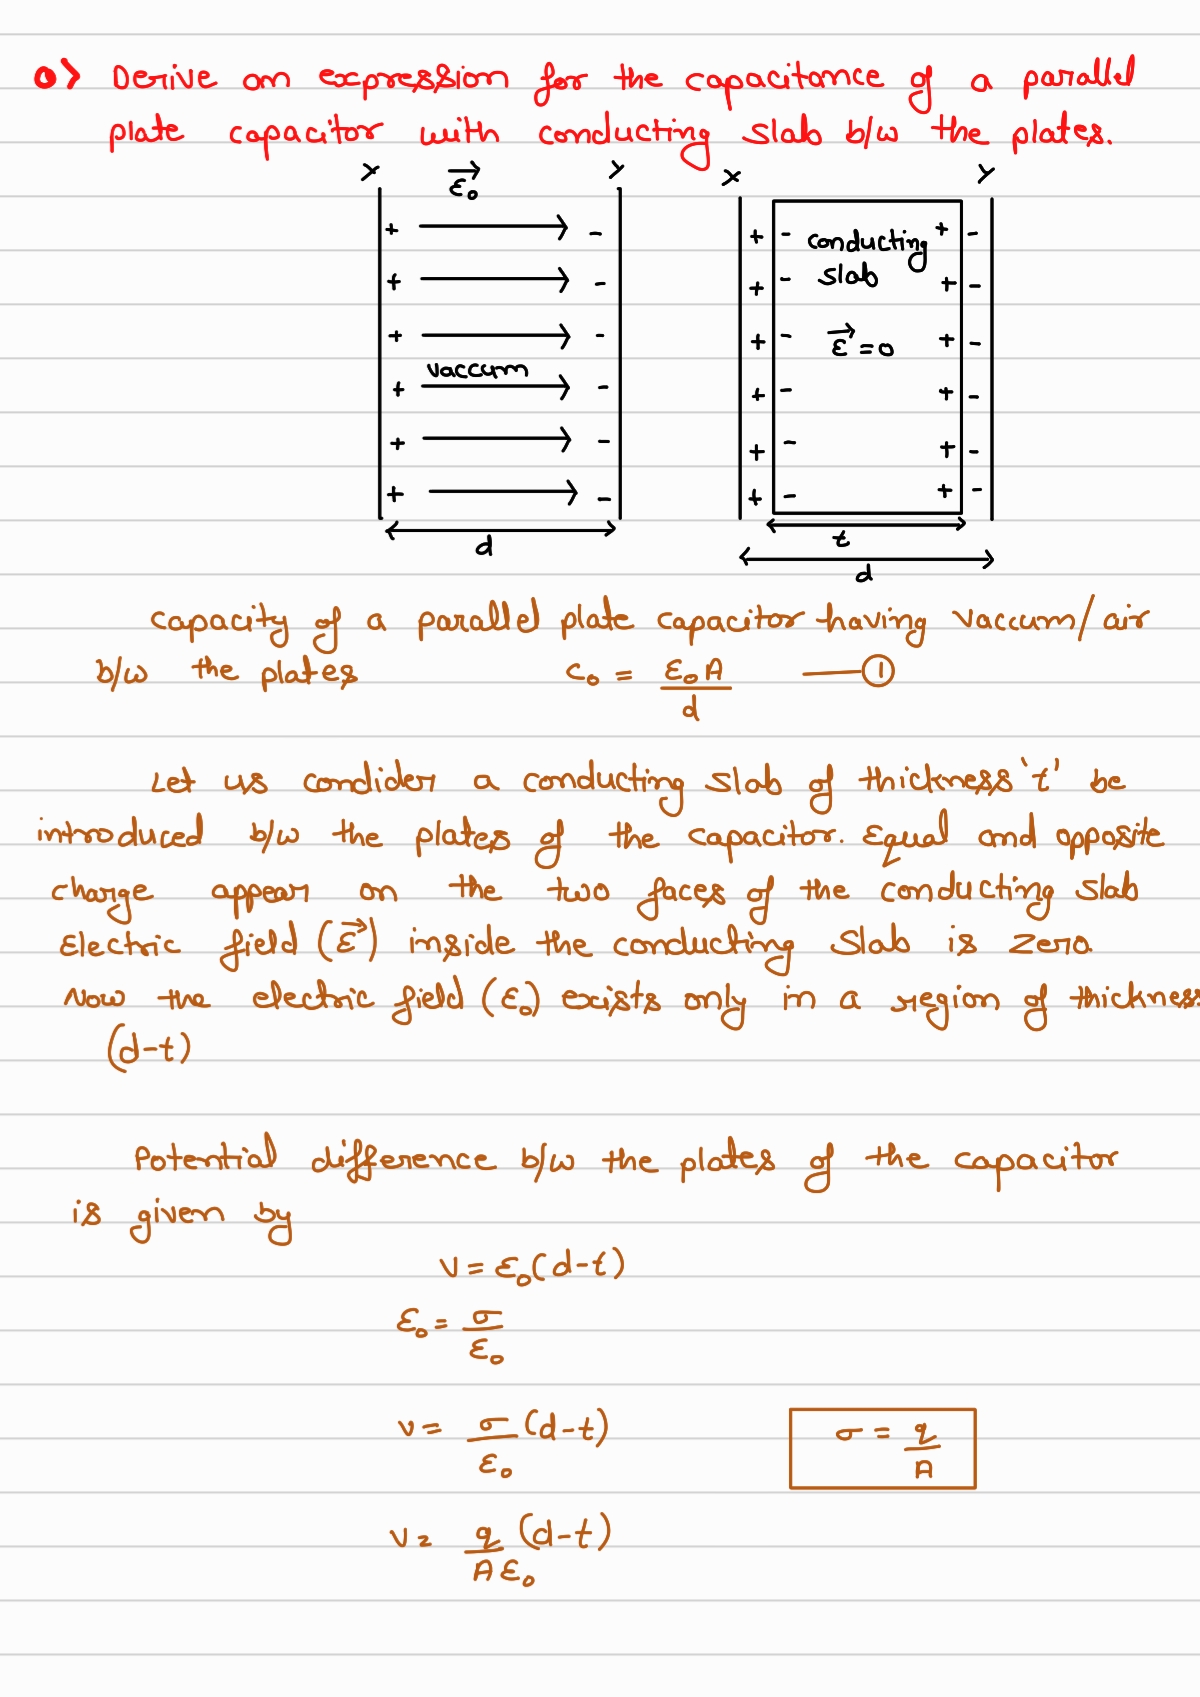 Q> Derive an expression for the capacitance of a parallel
plate capacitor with conducting slab b/w the plates.
X ε₀ Y
+ -
+ -
+ -
vaccum
+ -
+ -
+ -
d
X Y
+ - conducting + -
+ - slab + -
+ - ε = 0 + -
+ - + -
+ - + -
+ - + -
t
d
capacity of a parallel plate capacitor having vaccum/air
b/w the plates C₀ = ε₀A/d —①
Let us condider a conducting slab of thickness 't' be
introduced b/w the plates of the capacitor. Equal and opposite
charge appear on the two faces of the conducting slab
Electric field (ε) inside the conducting slab is zero.
Now the electric field (ε₀) exists only in a region of thickness
(d-t)
Potential difference b/w the plates of the capacitor
is given by
V = ε₀(d-t)
ε₀ = σ/ε₀
V = σ/ε₀ (d-t) σ = q/A
V = q/Aε₀ (d-t)